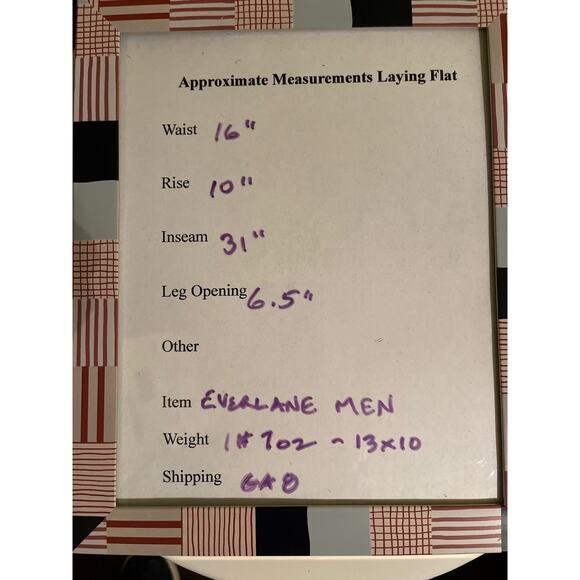 Approximate Measurements Laying Flat
Waist 16"
Rise 10"
Inseam 31"
Leg Opening 6.5"
Other
Item EVERLANE MEN
Weight 1# 7oz - 13x10
Shipping